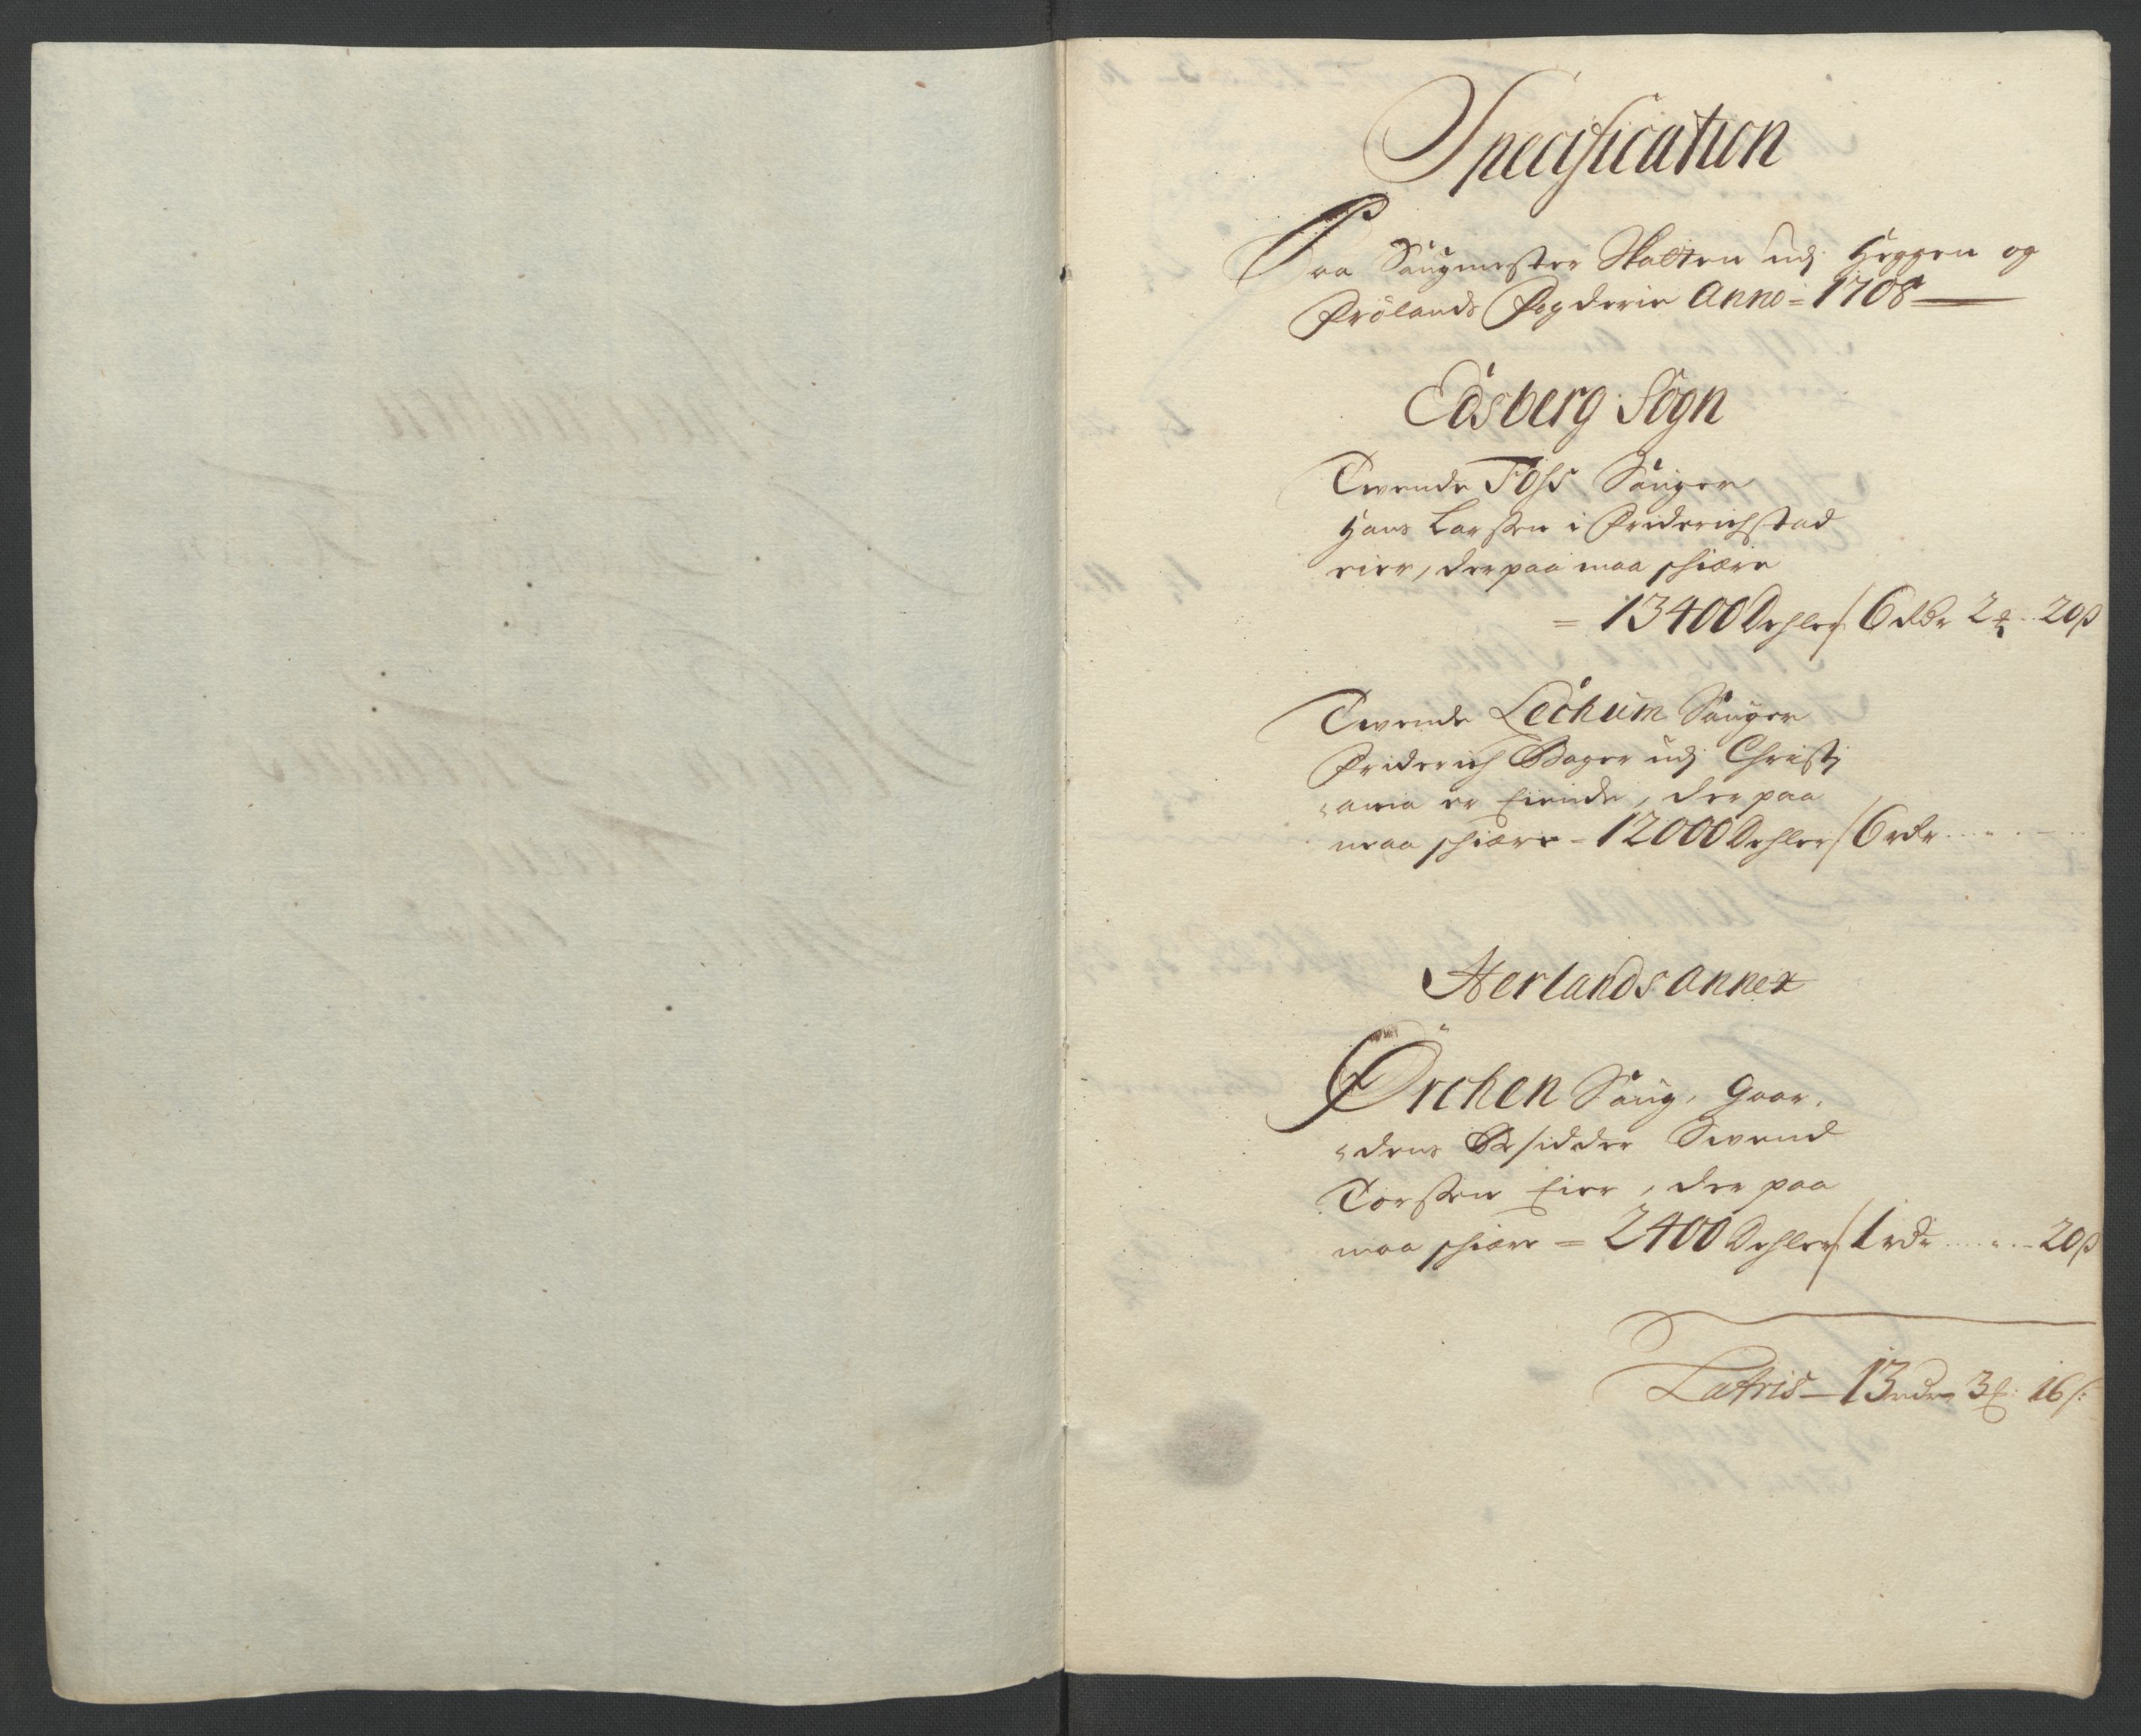 Specification
Paa Saugmester Skatten udj Heggen og
Frölands Fogderie Anno = 1708
Edsberg Sogn
Twende Foss Sauger
Hans Larssen i Friderichstad
eier, der paa maa schiære
= 13400 Dehler / 6 rdr 2 ₰ .. 20 β
Twende Lechum Sauger
Friderich Bager udj Christj
ania er Eiende, der paa
maa schiære = 12000 Dehler / 6 rdr
Herlands Annex
Örchen Saug, Gaar,
dens Besidder Swend
Torssen Eier, der paa
maa schiære = 2400 Dehler / 1 rdr ..... 20 β
Latris — 13 rdr 3 ₰: 16 β: